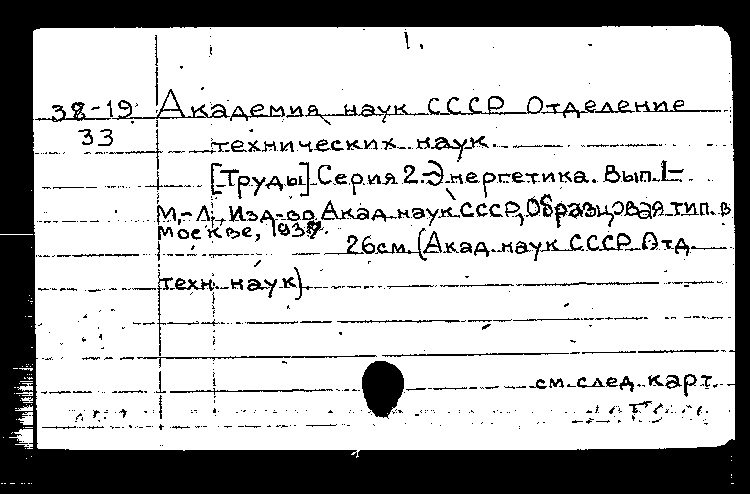 1.
38-19 Академия наук СССР Отделение
33 технических наук.
[Труды] Серия 2. Энергетика. Вып. 1-
М.-Л., Изд-во Акад. наук СССР, Образцовая тип. в
Москве, 1937.
26см. (Акад. наук СССР Отд.
техн. наук).
см. след. карт.